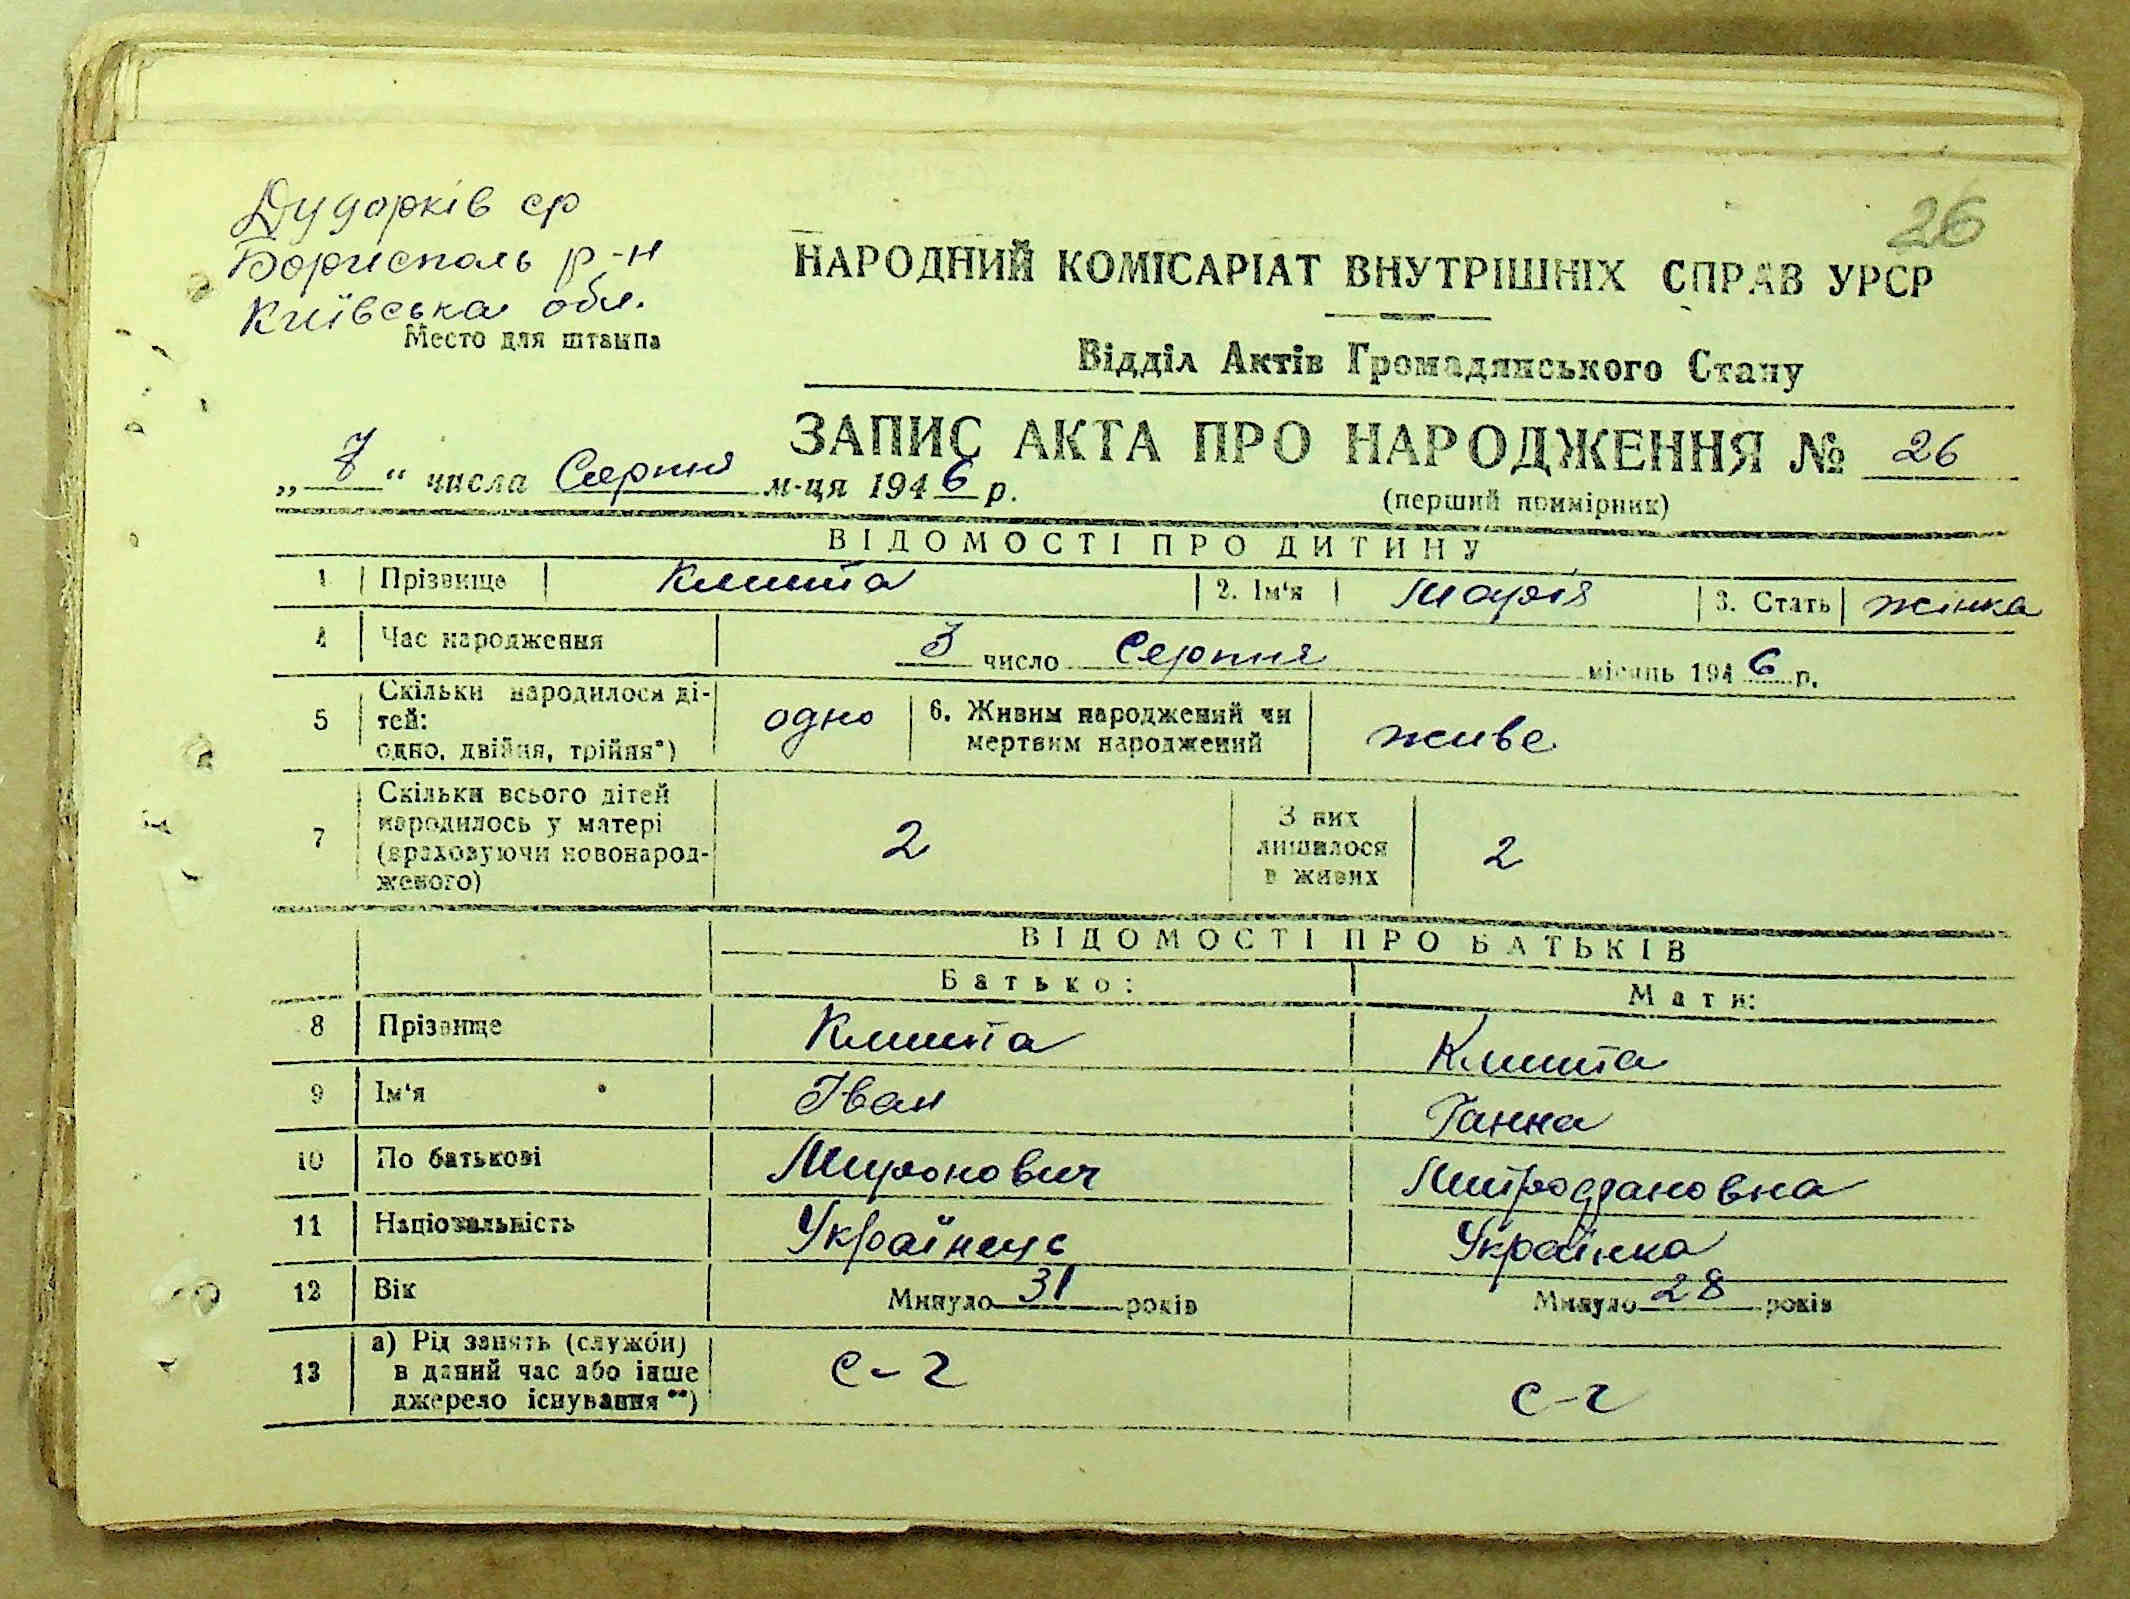 Дударків ср
26
Бориспаль р-н
Київська обл.
Место для штампа
НАРОДНИЙ КОМІСАРІАТ ВНУТРІШНІХ СПРАВ УРСР
Відділ Актів Громадянського Стану
ЗАПИС АКТА ПРО НАРОДЖЕННЯ № 26
(перший примірник)
„7“ числа Серпня м-ця 1946 р.
ВІДОМОСТІ ПРО ДИТИНУ
1 Прізвище Клишта 2. Ім'я Марія 3. Стать жінка
4 Час народження 3 число Серпня місяць 1946 р.
5 Скільки народилося ді-
тей:
одно, двійня, трійня*) одно 6. Живим народжений чи
мертвим народжений живе
7 Скільки всього дітей
народилось у матері
(враховуючи новонарод-
женого) 2 З них
лишилося
в живих 2
ВІДОМОСТІ ПРО БАТЬКІВ
Батько: Мати:
8 Прізвище Клишта Клишта
9 Ім'я Іван Ганна
10 По батькові Миронович Митрофановна
11 Національність Українець Українка
12 Вік Минуло 31 років Минуло 28 років
13 а) Рід занять (служби)
в даний час або інше
джерело існування**) с-г с-г